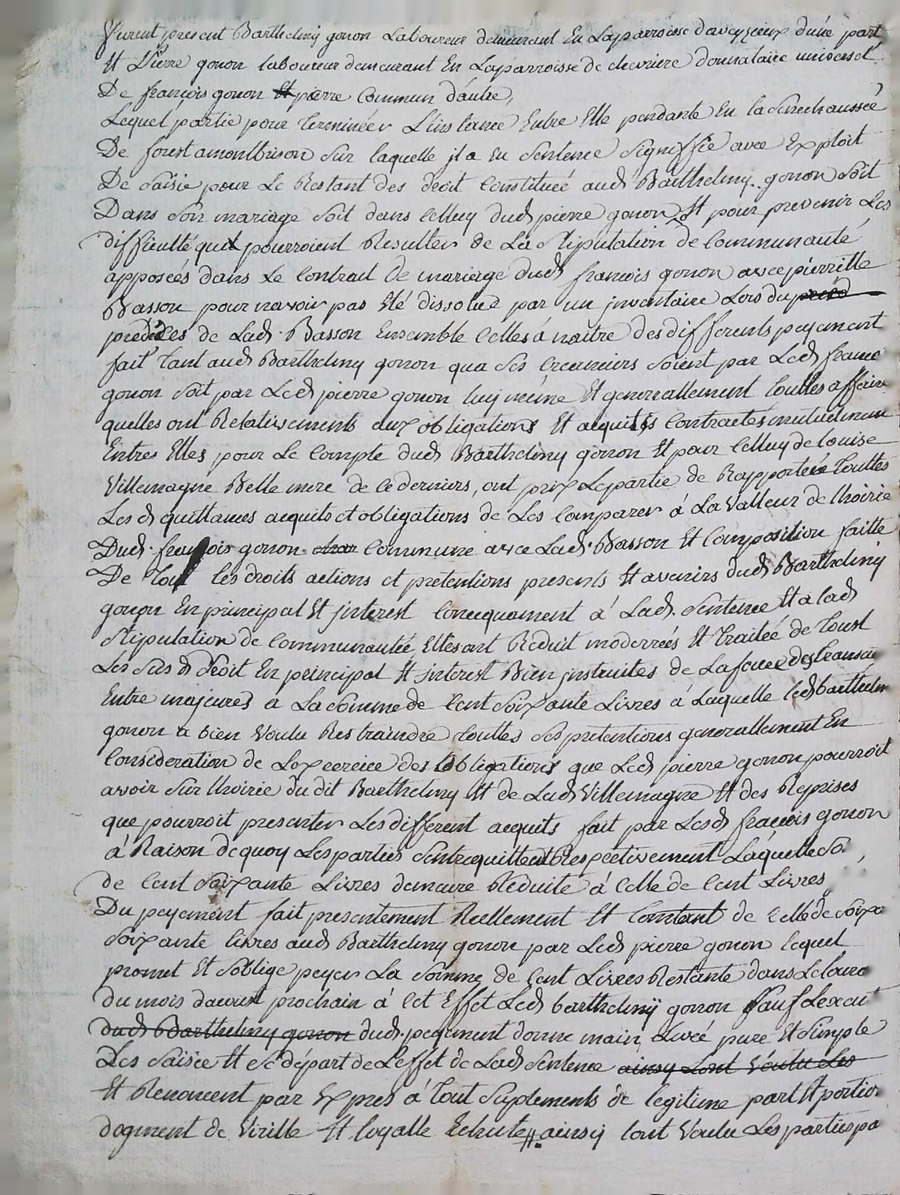 furent present Barthelmy gonon Laboureur demeurant En Laparroisse daveyzieux dune part
Et Pierre gonon laboureur demeurant En Laparroisse de chevriere donnataire universel
De françois gonon Et pierre Commun dautre,
Lequel partie pour Terminéer L'instence Entre Elle pendante En la Senechaussée
De forest amontbrison Sur laquelle jl a Eu Sentence Signiffiée avec Exploit
De Saisie pour Le Restant des droit Constituée aud Barthelmy gonon Soit
Dans Son mariage Soit dans Celluy dud pierre gonon Et pour prevenir Les
difficulté quil pourroient Resulter de La Stipulation de Communauté
apposées dans Le Contrait de mariage dud françois gonon avec pierrette
Basson pour navoir pas Eté dissolue par un jnventaire Lors du
predéces de Lad. Basson Ensemble Celles à naitre des differents payement
fait Tant aud Barthelmy gonon qua Ses Creanciers Soient par Led franc
gonon Soit par Led pierre gonon luy meme Et generallement touttes affaire
quelles ont Relativements aux obligations Et acquitts contractés mutuelment
Entres Elles pour Le Compte dud Barthelmy gonon Et pour Celluy de Louise
Villemagne Belle mere de ce derniers, ont prix Lepartie de Rapportéer Touttes
Les d quittances acquits et obligations de Les Comparer à La Valleur de lhoirie
Dud. françois gonon commune avec Lad. Basson Et Composition faitte
De Tous les droits actions et pretentions presents Et avenirs dud Barthelmy
gonon En principal Et jnterest Concequament à Lad. Sentence Et a lad
Stipulation de Communauté Elles ont Reduit moderrées Et Traitée de Toust
Les Sus d droit En principal Et jnterest Bien jnstruites de La force des transac
Entre majeures à La Somme de Cent Soixante Livres à Laquelle Led barthelm
gonon a bien Voulu Restraindre touttes Ses pretentions generallement En
Consideration de Lexercice des obligations que Led pierre gonon pourroit
avoir Sur lhoirie du dit Barthelmy Et de Lad Villemagne Et des Reprises
que pourroit presenter Les different acquits fait par Les d françois gonon
a Raison de quoy Les parties Sentrequittent Respectivement Laquelle So
de Cent Soixante Livres demeure Reduite à Celle de Cent Livres
Du payement fait presentement Reellement Et Contant de Celle de Soixa
Soixante livres aud Barthelmy gonon par Led pierre gonon Lequel
promet Et Soblige payer La Somme de Cent Livres Restante dans Le Cour
du mois daoust prochain à Cet Effet Led barthelmy gonon Sauf Lexecut
dud Barthelmy gonon dud. payement donne main Levée pure Et Simple
Des Saisée Et Se départ de L'effet de Lad Sentence ainsy Lont Voulu Les
Et Renoncent par Exprès à Tout Suplements de legitime part Et portion
dogment de Virille Et loyalle Echutte ainsy Lont Voulu Les parties pa